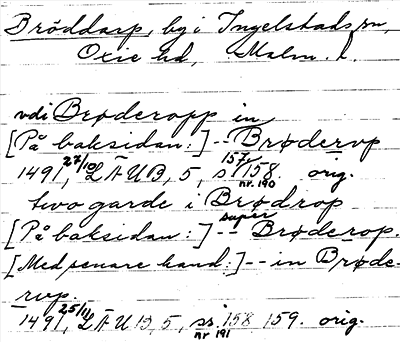 Bröddarp, by i Ingelstads sn,
Oxie hd, Malm. l.
vdi Brøderopp in
[På baksidan:] -- Brødervp
1491, 27/10 LÄUB, 5, s. 157, 158. orig.
nr. 190
two garde i Brødrop
[På baksidan:] -- super Brøderop.
[Med senare hand:] -- in Brøde-
rvp.
1491, 25/11 LÄUB, 5, ss. 158 159. orig.
nr 191